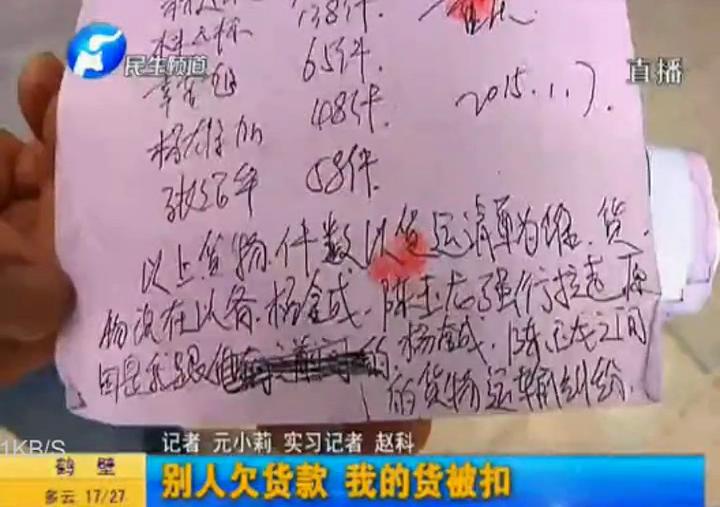 138件.
民生频道
65件.
直播
48件.
2015.1.7.
58件.
以上货物.件数以货运清单为准.货.
物现在以备.杨金成.陈玉龙强行拉走原
因是我跟他 的.杨金成.陈玉龙之间
的货物运输纠纷.
1KB/S
记者 元小莉 实习记者 赵科
鹤 壁
别人欠货款 我的货被扣
多云 17/27